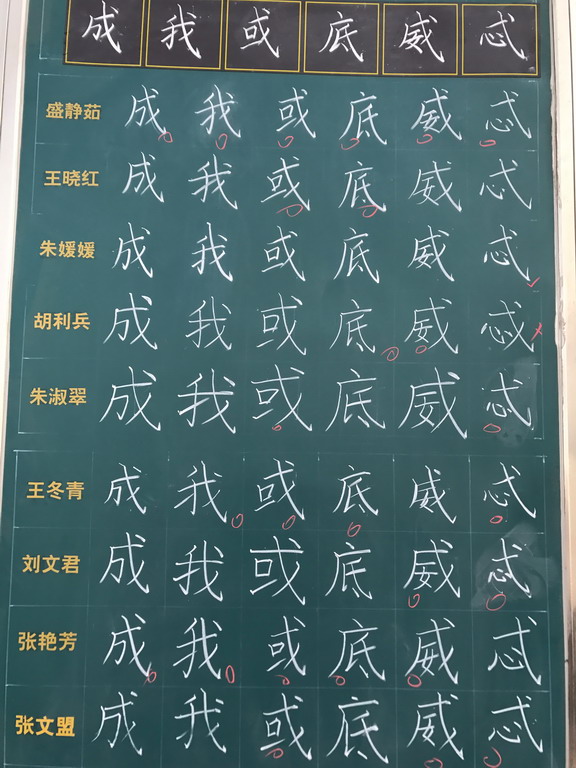 成 我 或 底 威 忒
盛静茹 成 我 或 底 威 忒
王晓红 成 我 或 底 威 忒
朱媛媛 成 我 或 底 威 忒
胡利兵 成 我 或 底 威 忒
朱淑翠 成 我 或 底 威 忒
王冬青 成 我 或 底 威 忒
刘文君 成 我 或 底 威 忒
张艳芳 成 我 或 底 威 忒
张文盟 成 我 或 底 威 忒